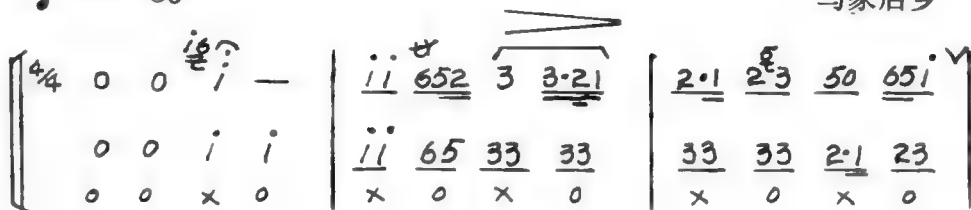 4/4 0 0 i — | i i 652 3 3·21 | 2·1 2 3 50 65i
0 0 i i | i i 65 33 33 | 33 33 2·1 23
0 0 x 0 | x 0 x 0 | x 0 x 0